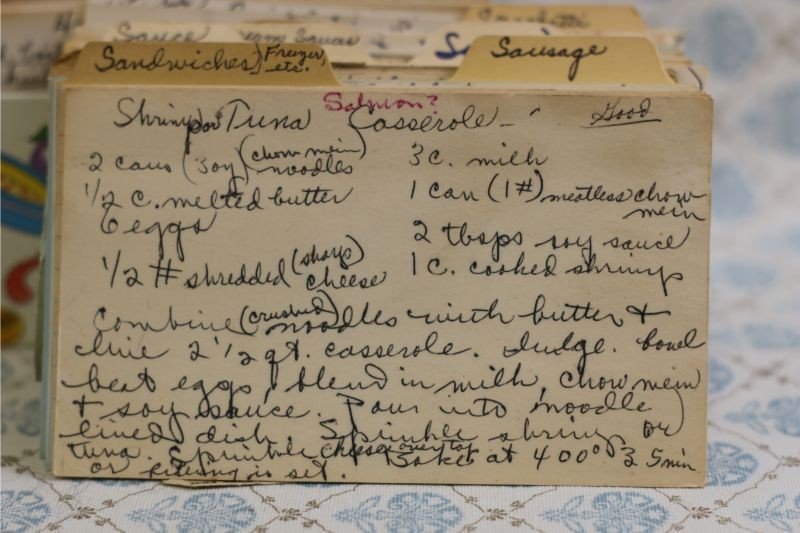 Sauce
Sandwiches, Freezer, etc.
Sausage
Salmon?
Shrimp or Tuna Casserole — Good
2 cans (3 oz) (chow mein) noodles
1/2 c. melted butter
6 eggs
1/2 # shredded (sharp) cheese
3 c. milk
1 can (1#) meatless chow mein
2 tbsps soy sauce
1 c. cooked shrimp
Combine (crushed) noodles with butter &
line 2 1/2 qt. casserole. In lge. bowl
beat eggs, blend in milk, chow mein
& soy sauce. Pour into noodle
lined dish. Sprinkle shrimp or
tuna. Sprinkle cheese over top. Bake at 400° 35 min
or is set.